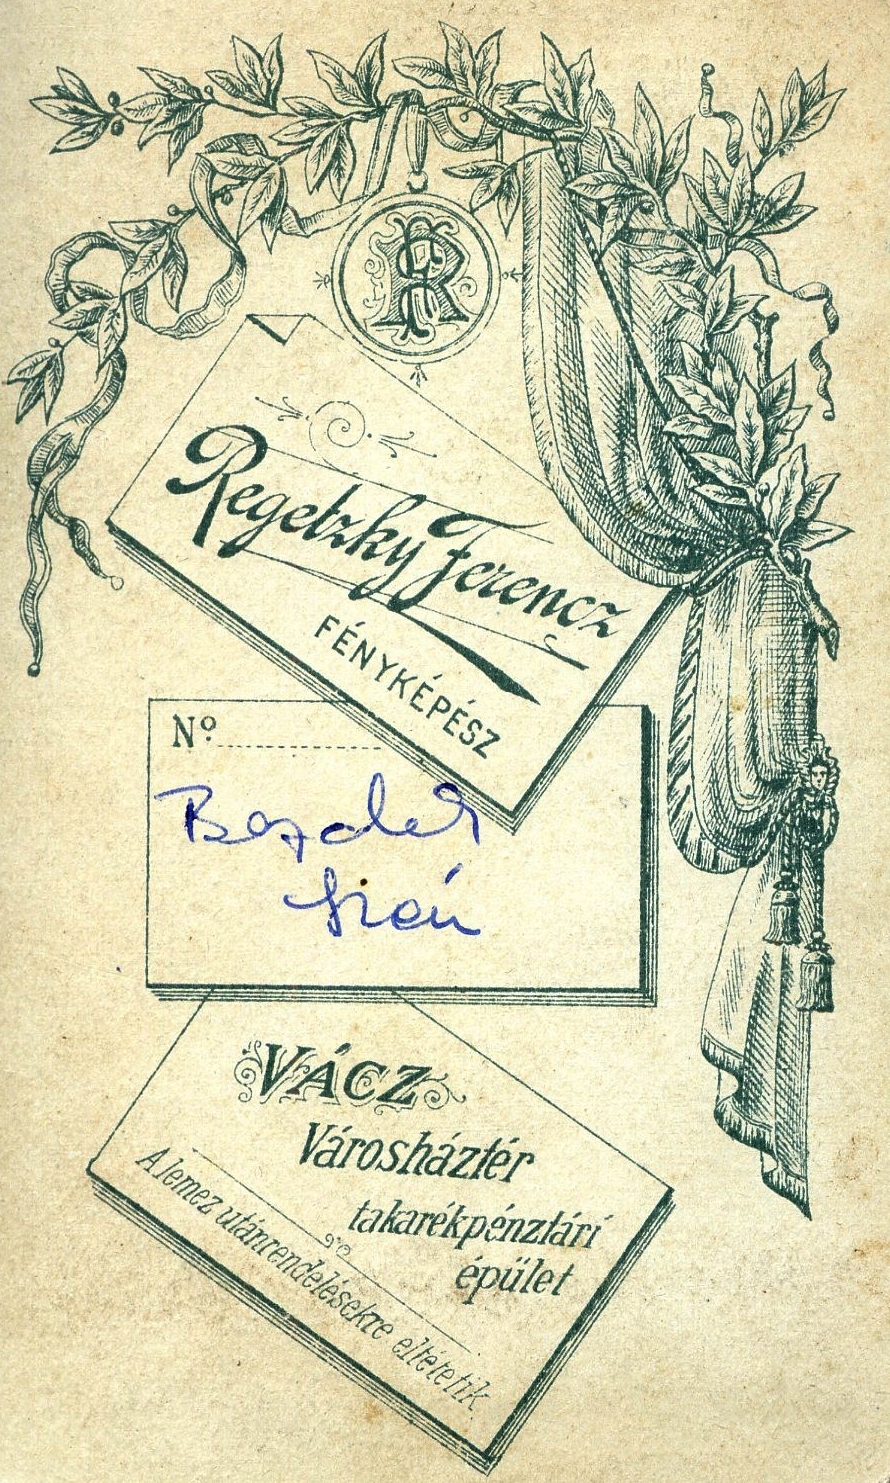 Regetzky Ferencz
FÉNYKÉPÉSZ
Nº
VÁCZ
Városháztér
takarékpénztári
épület
A lemez utánrendelésekre eltétetik